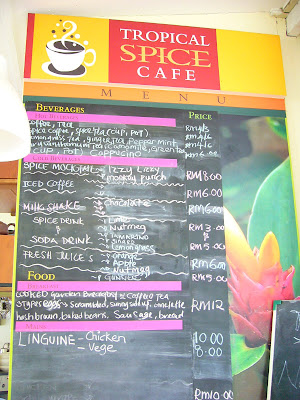 TROPICAL
SPICE
CAFE
MENU
BEVERAGES PRICE
HOT BEVERAGES
Coffee, Tea RM4/5
Spice coffee, Spice tea (cup, pot) RM4/5
Lemongrass tea, ginger tea, Peppermint
(Camomile, Green tea
(cup, pot) Cappucino RM6.00
COLD BEVERAGES
SPICE MOCKTAIL - Tizzy Lizzy RM8.00
- monkey punch
ICED COFFEE RM6.00
MILK SHAKE - chocolate RM6.00
SPICE DRINK - Lime RM3.00
- Nutmeg
SODA DRINK - Ginger RM5.00
- Lemongrass
FRESH JUICE'S - Orange RM6.00
- Apple
- Nutmeg RM5.00
FOOD
BREAKFAST
COOKED Garden Breakfast - Coffee or Tea
Scrambled, sunny side up, omelette RM12
hashbrown, baked beans, Sausage, bread
MAINS
LINGUINE - Chicken 10.00
- Vege 8.00
RM10.00